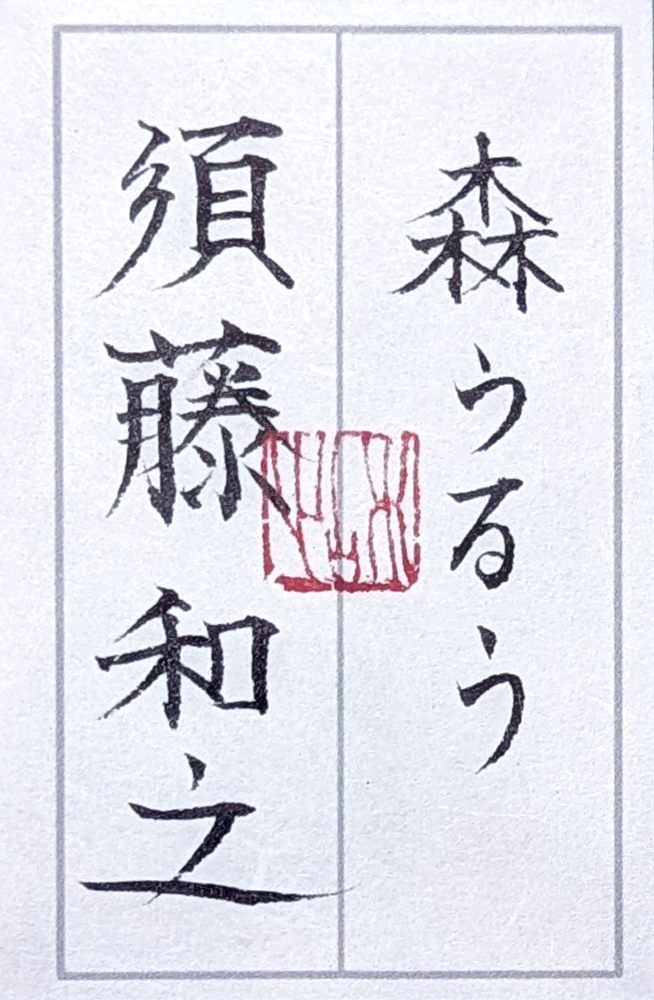 森うるう
須藤和之